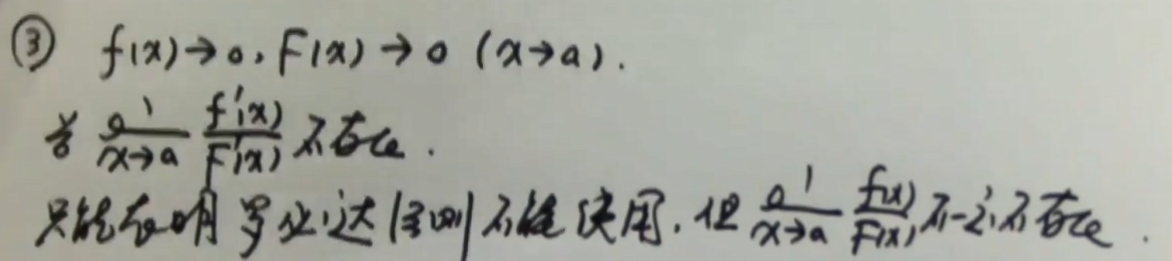 ③ f(x)→0, F(x)→0 (x→a).
若 lim x→a f'(x)/F'(x) 不存在.
只能表明罗必达法则不能使用, 但 lim x→a f(x)/F(x) 不一定不存在.